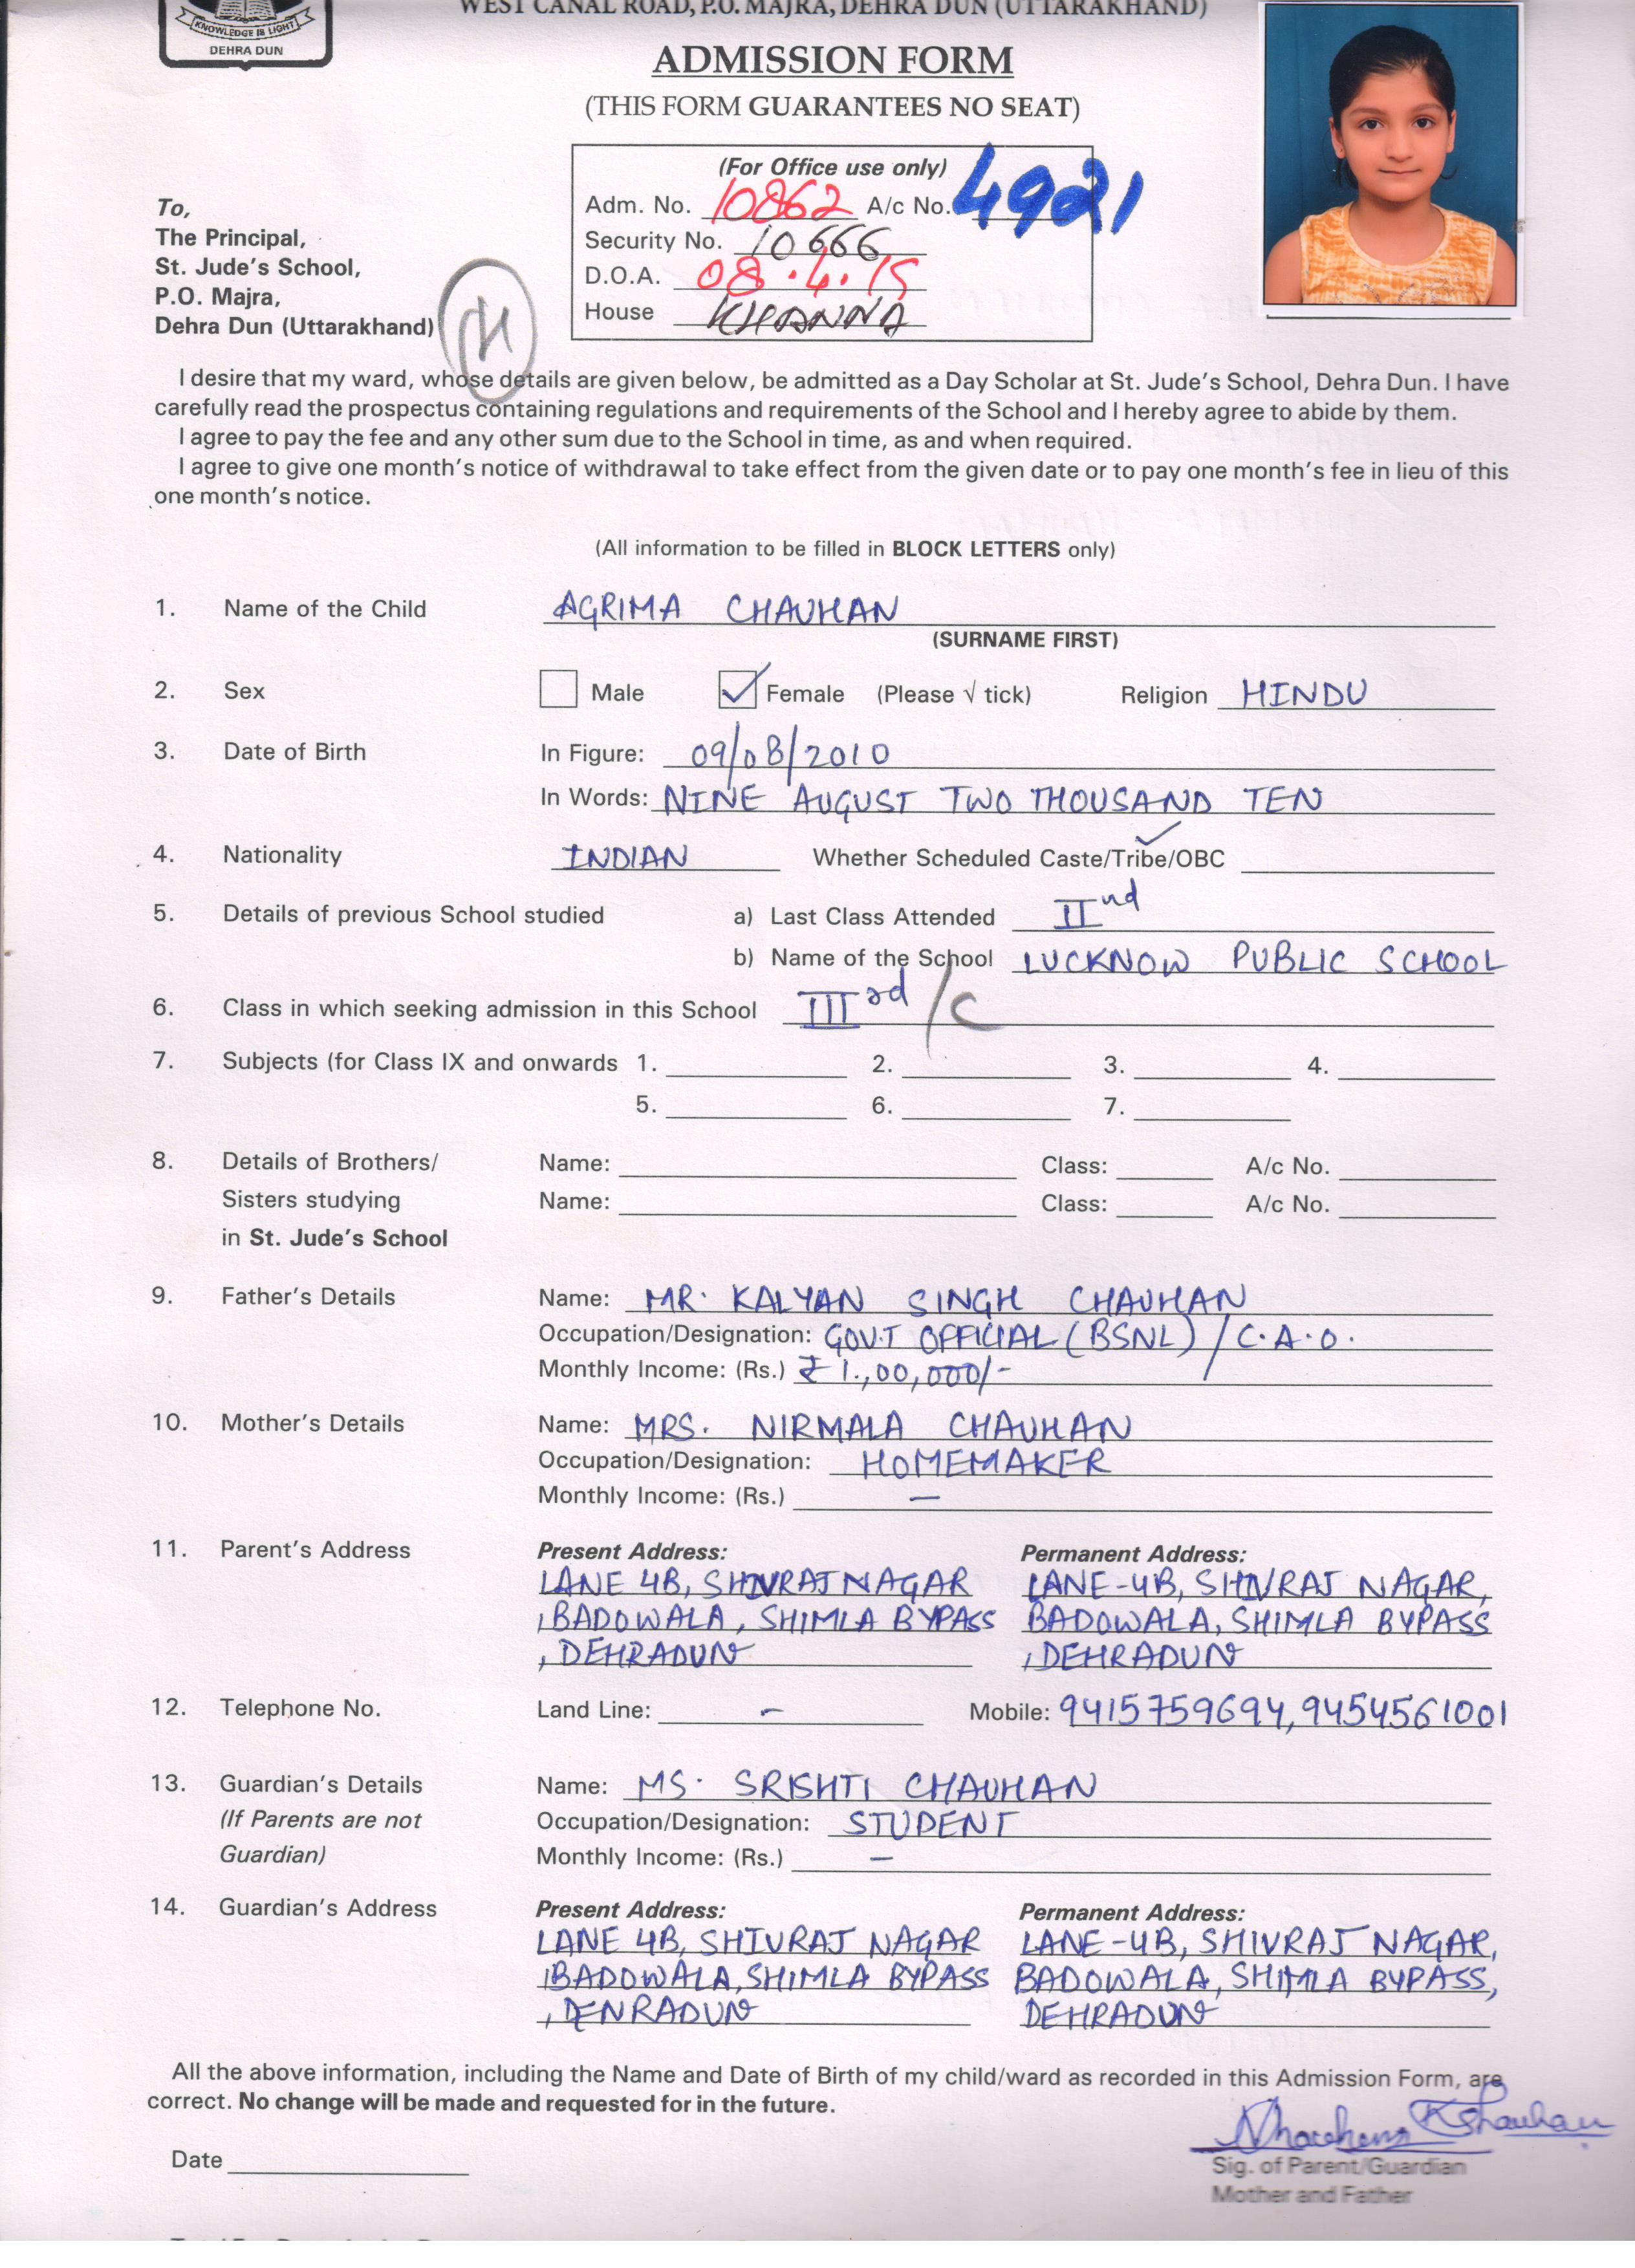 WEST CANAL ROAD, P.O. MAJRA, DEHRA DUN (UTTARAKHAND)
KNOWLEDGE IS LIGHT
DEHRA DUN
ADMISSION FORM
(THIS FORM GUARANTEES NO SEAT)
(For Office use only)
Adm. No. 10862 A/c No. 4921
Security No. 10666
D.O.A. 08.4.15
House KHANNA
To,
The Principal,
St. Jude's School,
P.O. Majra,
Dehra Dun (Uttarakhand)
I desire that my ward, whose details are given below, be admitted as a Day Scholar at St. Jude's School, Dehra Dun. I have
carefully read the prospectus containing regulations and requirements of the School and I hereby agree to abide by them.
I agree to pay the fee and any other sum due to the School in time, as and when required.
I agree to give one month's notice of withdrawal to take effect from the given date or to pay one month's fee in lieu of this
one month's notice.
(All information to be filled in BLOCK LETTERS only)
1. Name of the Child AGRIMA CHAUHAN
(SURNAME FIRST)
2. Sex Male Female (Please √ tick) Religion HINDU
3. Date of Birth In Figure: 09/08/2010
In Words: NINE AUGUST TWO THOUSAND TEN
4. Nationality INDIAN Whether Scheduled Caste/Tribe/OBC
5. Details of previous School studied a) Last Class Attended IInd
b) Name of the School LUCKNOW PUBLIC SCHOOL
6. Class in which seeking admission in this School IIIrd /C
7. Subjects (for Class IX and onwards 1. 2. 3. 4.
5. 6. 7.
8. Details of Brothers/ Name: Class: A/c No.
Sisters studying Name: Class: A/c No.
in St. Jude's School
9. Father's Details Name: MR. KALYAN SINGH CHAUHAN
Occupation/Designation: GOV.T OFFICIAL (BSNL) / C.A.O.
Monthly Income: (Rs.) ₹ 1,00,000/-
10. Mother's Details Name: MRS. NIRMALA CHAUHAN
Occupation/Designation: HOMEMAKER
Monthly Income: (Rs.) –
11. Parent's Address Present Address: Permanent Address:
LANE 4B, SHIVRAJ NAGAR LANE-4B, SHIVRAJ NAGAR,
, BADOWALA, SHIMLA BYPASS BADOWALA, SHIMLA BYPASS
, DEHRADUN , DEHRADUN
12. Telephone No. Land Line: – Mobile: 9415759694, 9454561001
13. Guardian's Details Name: MS. SRISHTI CHAUHAN
(If Parents are not Occupation/Designation: STUDENT
Guardian) Monthly Income: (Rs.) –
14. Guardian's Address Present Address: Permanent Address:
LANE 4B, SHIVRAJ NAGAR LANE-4B, SHIVRAJ NAGAR,
, BADOWALA, SHIMLA BYPASS BADOWALA, SHIMLA BYPASS,
, DENRADUN DEHRADUN
All the above information, including the Name and Date of Birth of my child/ward as recorded in this Admission Form, are
correct. No change will be made and requested for in the future.
Date
Sig. of Parent/Guardian
Mother and Father